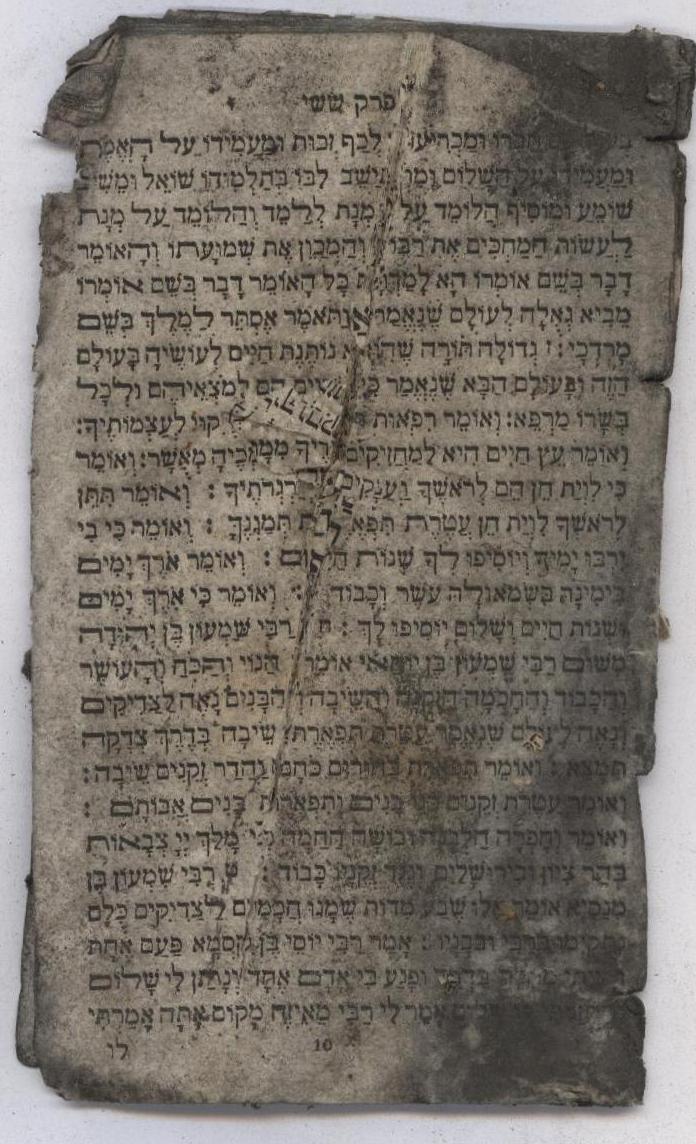 פרק ששי
חברו ומכריעו לכף זכות ומעמידו על האמת
ומעמידו על השלום ומתישב לבו בתלמודו שואל ומשיב
שומע ומוסיף הלומד על מנת ללמד והלומד על מנת
לעשות המחכים את רבו והמכון את שמועתו והאומר
דבר בשם אומרו הא למדת כל האומר דבר בשם אומרו
מביא גאלה לעולם שנאמר ותאמר אסתר למלך בשם
מרדכי: ז גדולה תורה שהיא נותנת חיים לעושיה בעולם
הזה ובעולם הבא שנאמר כי חיים הם למצאיהם ולכל
בשרו מרפא: ואומר רפאות שקוי לעצמותיך:
ואומר עץ חיים היא למחזיקים ותומכיה מאשר: ואומר
כי לוית חן הם לראשך וענקים לגרגרתיך: ואומר תתן
לראשך לוית חן עטרת תפארת תמגנך: ואומר כי בי
ירבו ימיך ויוסיפו לך שנות חיים: ואומר ארך ימים
בימינה בשמאולה עשר וכבוד: ואומר כי ארך ימים
ושנות חיים ושלום יוסיפו לך: ח רבי שמעון בן יהודה
משום רבי שמעון בן יוחאי אומר הנוי והכח והעושר
והכבוד והחכמה הזקנה והשיבה והבנים נאה לצדיקים
ונאה לעולם שנאמר עטרת תפארת שיבה בדרך צדקה
תמצא: ואומר תפארת בחורים כחם והדר זקנים שיבה:
ואומר עטרת זקנים בני בנים ותפארת בנים אבותם:
ואומר וחפרה הלבנה ובושה החמה כי מלך יי צבאות
בהר ציון ובירושלים ונגד זקניו כבוד: ט רבי שמעון בן
מנסיא אומר אלו שבע מדות שמנו חכמים לצדיקים כלם
נתקימו ברבי ובבניו: אמר רבי יוסי בן קסמא פעם אחת
בדרך ופגע בי אדם אחד ונתן לי שלום
אמר לי רבי מאיזה מקום אתה אמרתי
10 לו